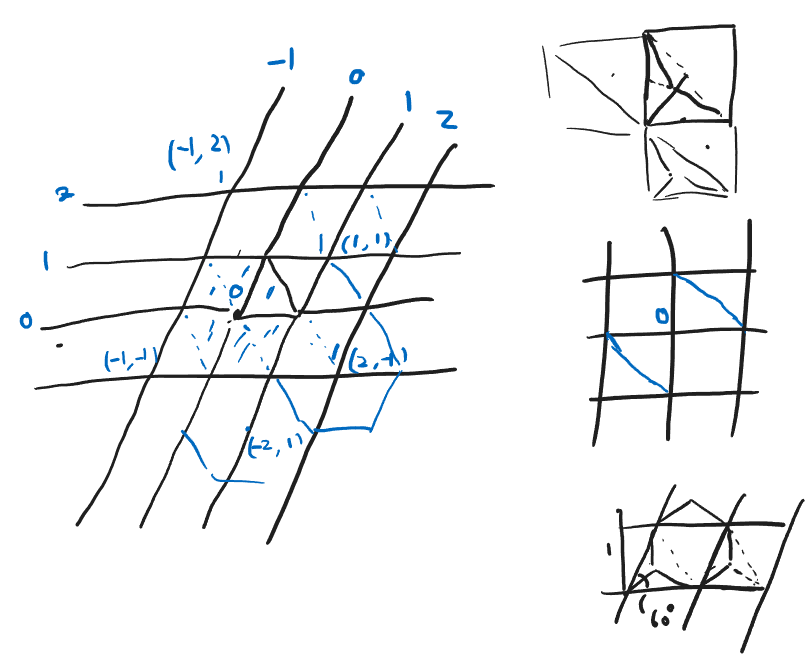 -1 0 1 2
(-1, 2)
2
1
1 (1, 1)
0
0
(-1, -1)
(2, -1)
(-2, 1)
0
1
60°